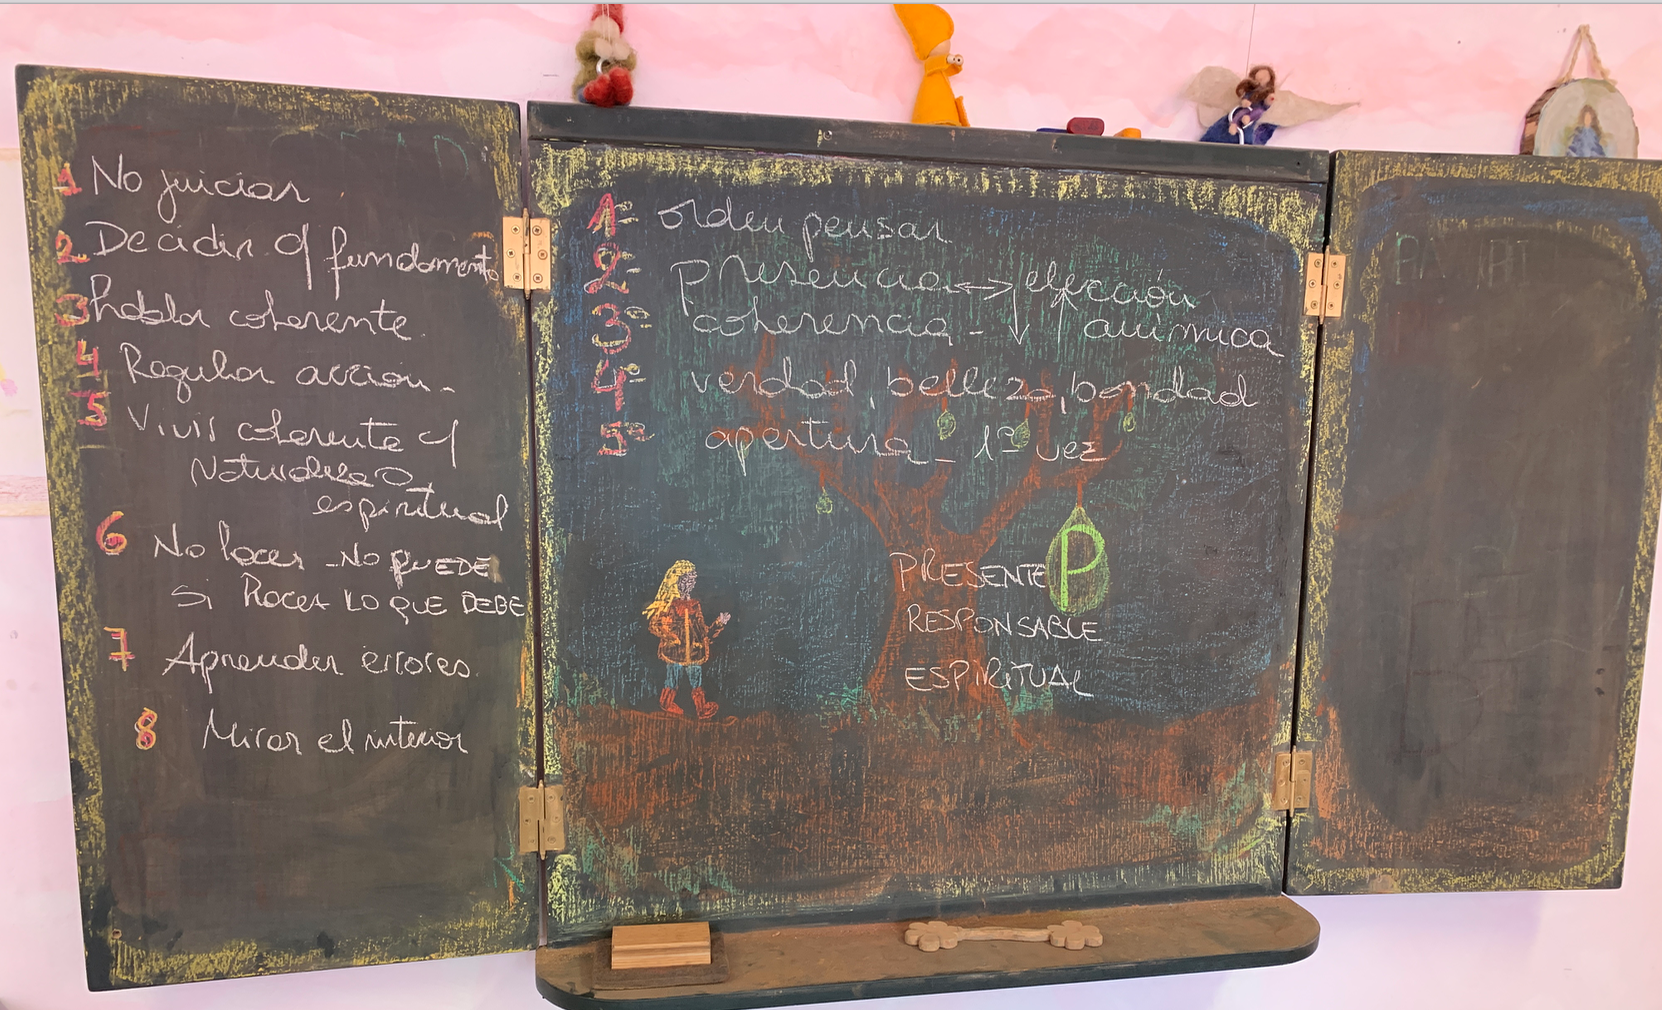 1 No juiciar
2 Decidir cf fundamento
3 hablar coherente
4 Regular accion-
5 Vivir coherente cf
Naturaleza
espiritual
6 No hacer - NO PUEDE
Si hacer LO QUE DEBE
7 Aprender errores.
8 Mirar el interior
1º orden pensar
2º presencia ↔ ↓ elección
3º coherencia - ↑ anímica
4º verdad, belleza, bondad
5º apertura - 1ª vez
PRESENTE P
RESPONSABLE
ESPIRITUAL